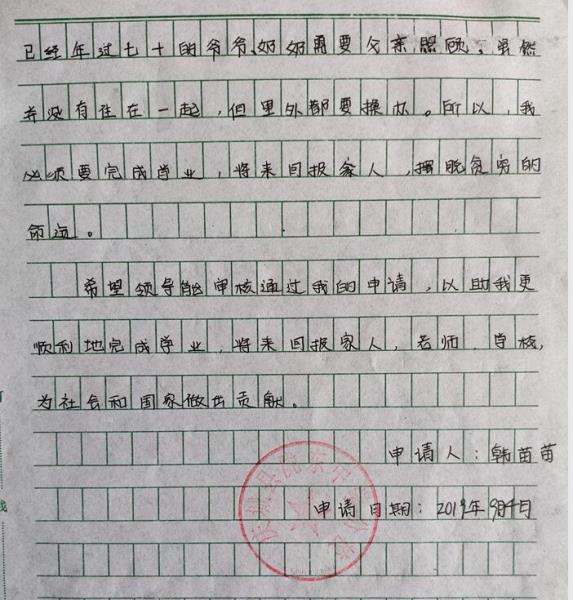 已经年过七十的爷爷、奶奶需要父亲照顾,虽然
并没有住在一起,但里外都要操心。所以,我
必须要完成学业,将来回报家人,摆脱贫穷的
命运。
希望领导能审核通过我的申请,以助我更
顺利地完成学业,将来回报家人,老师,学校,
为社会和国家做出贡献。
申请人:韩苗苗
申请日期:2019年9月